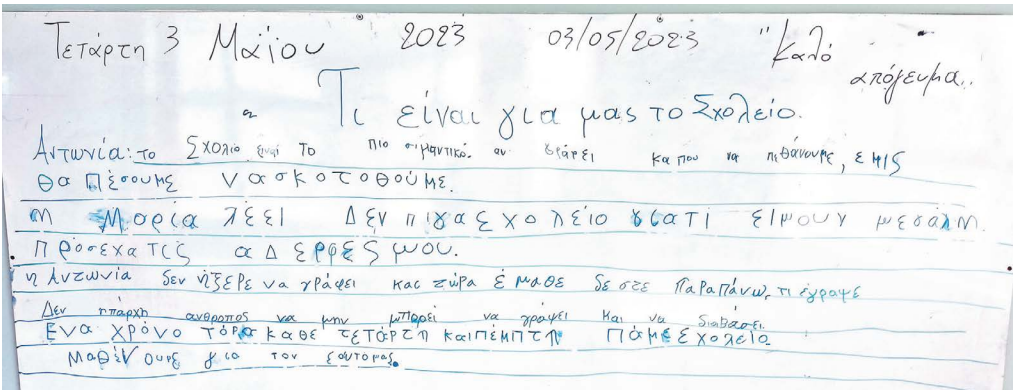 Τετάρτη 3 Μαΐου 2023 03/05/2023 "Καλό απόγευμα..
Τι είναι για μας το Σχολείο.
Αντωνία: το Σχολιο είναι το πιο σιμαντικό. αν γράφει κα που να πιθάνουμε, εμις
θα πέσουμε να σκοτοθούμε.
η Μαρία λέει Δεν πιγα Σχολείο γιατί είμουν μεσάλη.
Πρόσεχα τις αΔερφές μου.
η Αντωνία δεν ήξερε να γράφει και τώρα έμαθε δεστε παραπάνω, τι έγραψε
Δεν ηπάρχη ανθροπος να μην μπορει να γράψει και να διαβάσει.
Ενα χρόνο τόρα καθε τετάρτη και πέμπτη πάμε Σχολείο
μαθένουμε για τον εαυτομας.